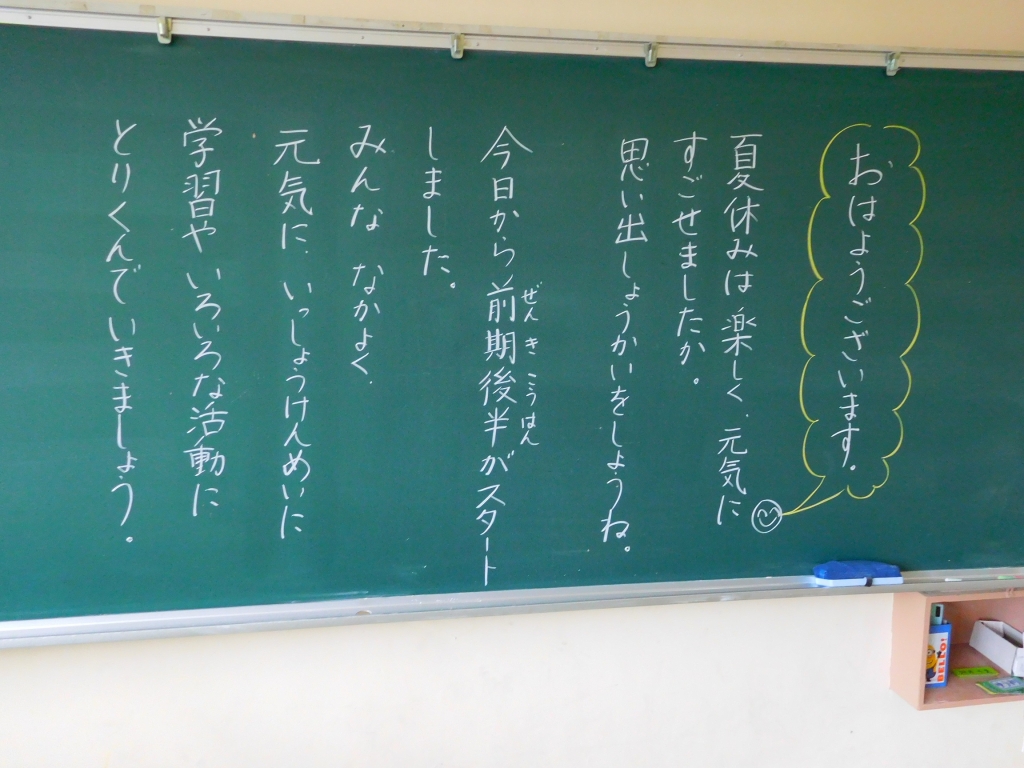 おはようございます。
夏休みは楽しく、元気に
すごせましたか。
思い出しょうかいをしようね。
今日から前期後半がスタート
ぜんきこうはん
しました。
みんな なかよく、
元気に、いっしょうけんめいに
学習や いろいろな活動に
とりくんでいきましょう。
BELLO!